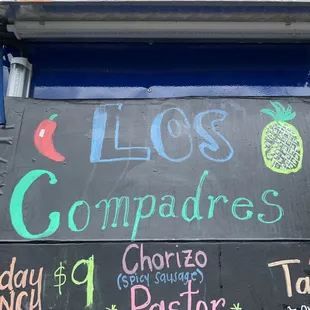 Los
Compadres
$9
Chorizo
(Spicy Sausage)
Pastor